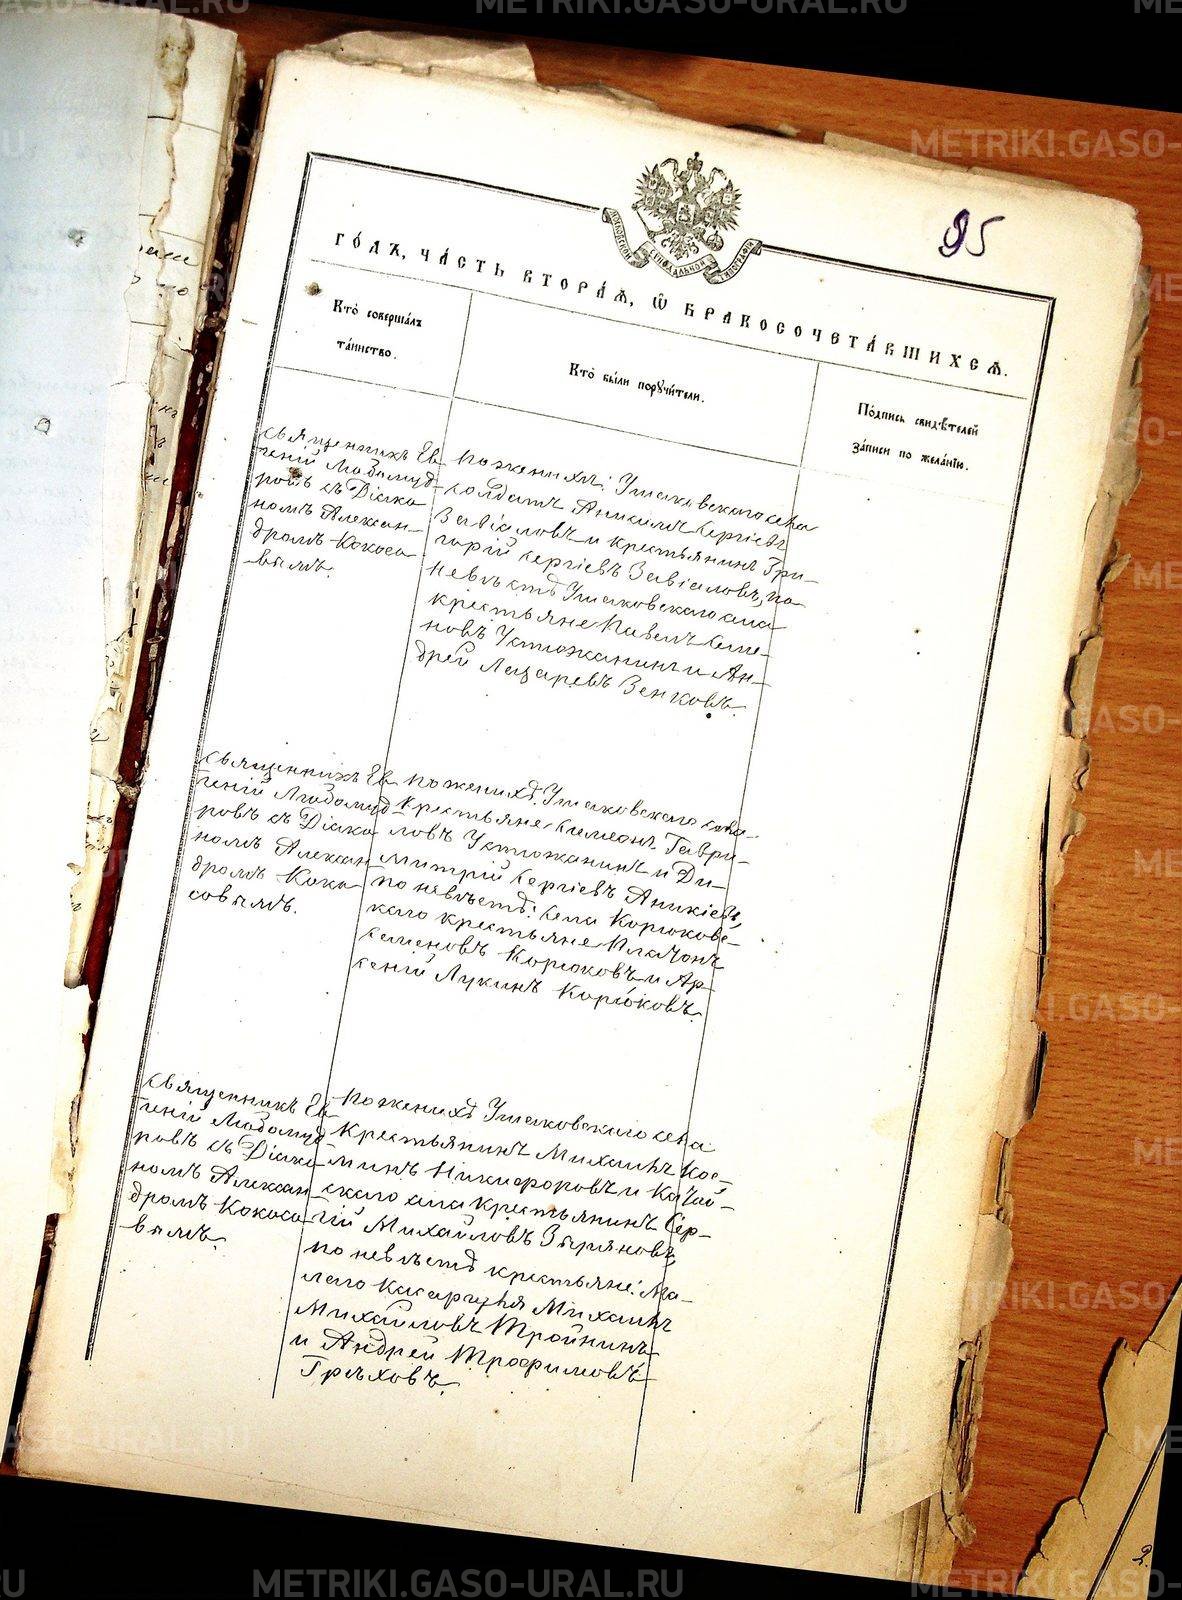 METRIKI.GASO-URAL.RU
95
МОСКОВСКОЙ СѴНОДАЛЬНОЙ ТИПОГРАФІИ
ГО́ДЪ, ЧА́СТЬ ВТОРА́Ѧ, Ѽ БРАКОСОЧЕТА́ВШИХСѦ.
Кто̀ соверша́лъ
та́инство.
Кто̀ бы́ли порꙋчи́тели.
По́дпись свидѣ́телей
за́писи по жела́нїю.
Священникъ Ев
геній Любомуд-
ровъ съ Діако
номъ Алексан-
дромъ Кокосо
вымъ.
По женихѣ: Ушаковскаго села
солдатъ Аникимъ Сергіевъ
Завіаловъ и крестьянинъ Гри-
горій Сергіевъ Завіаловъ, по
невѣстѣ Ушаковскаго села
крестьяне Павелъ Семе-
новъ Устюжанинъ и Ан-
дрей Лазаревъ Зенковъ.
Священникъ Ев
геній Любомуд
ровъ съ Діако
номъ Алексан
дромъ Коко
совымъ.
По женихѣ: Ушаковскаго села-
крестьяне Симеонъ Гаври-
ловъ Устюжанинъ и Ди-
митрій Сергіевъ Аникіевъ,
по невѣстѣ: села Корюковс-
каго крестьяне Платонъ
Семеновъ Корюковъ и Ар-
сеній Лукинъ Корюковъ.
Священникъ Ев
геній Любомуд
ровъ съ Діако-
номъ Алексан
дромъ Кокосо
вымъ.
По женихѣ Ушаковскаго села
крестьянинъ Михаилъ Кос-
минъ Никифоровъ и Качай-
скаго села крестьянинъ Сер-
гій Михайловъ Зыряновъ,
по невѣстѣ крестьяне: Ма-
лаго Касаргуля Михаилъ
Михайловъ Тройнинъ
и Андрей Трофимовъ
Грѣховъ.
2